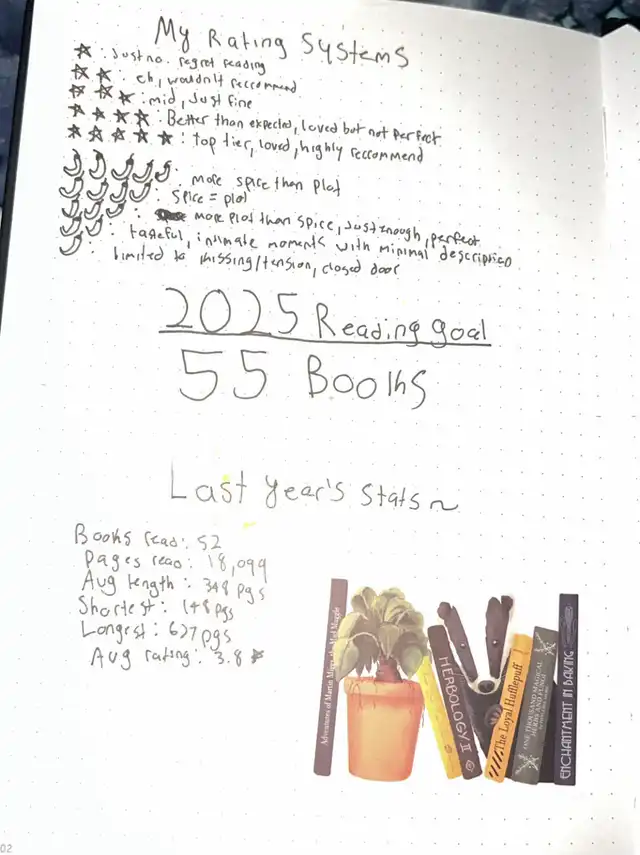 My Rating Systems
★ : Just no. regret reading
★★ : eh, wouldn't reccommend
★★★ : mid, just fine
★★★★ : Better than expected, loved but not perfect
★★★★★ : top tier, loved, highly reccommend
🌶🌶🌶🌶🌶 : more spice than plot
🌶🌶🌶🌶 : spice = plot
🌶🌶🌶 : more plot than spice, just enough, perfect
🌶🌶 : tasteful, intimate moments with minimal description
🌶 : limited to kissing/tension, closed door
2025 Reading goal
55 Books
Last year's stats ~
Books read: 52
Pages read: 18,099
Avg length: 348 pgs
Shortest: 148 pgs
Longest: 627 pgs
Avg rating: 3.8 ★
Adventures of Martin Miggs, the Mad Muggle
HERBOLOGY II
The Loyal Hufflepuff
ONE THOUSAND MAGICAL
HERBS AND FUNGI
ENCHANTMENT IN BAKING
02